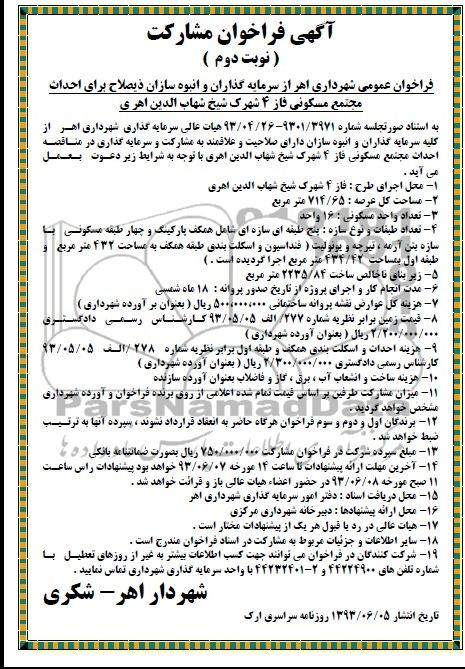 آگهی فراخوان مشارکت
( نوبت دوم )
فراخوان عمومی شهرداری اهر از سرمایه گذاران و انبوه سازان ذیصلاح برای احداث
مجتمع مسکونی فاز ۴ شهرک شیخ شهاب الدین اهری
به استناد صورتجلسه شماره ۹۳۰۱/۳۹۷۱-۹۳/۰۴/۲۶ هیات عالی سرمایه گذاری شهرداری اهر از
کلیه سرمایه گذاران و انبوه سازان دارای صلاحیت و علاقمند به مشارکت و سرمایه گذاری در مناقصه
احداث مجتمع مسکونی فاز ۴ شهرک شیخ شهاب الدین اهری با توجه به شرایط زیر دعوت بعمل
می آید .
۱- محل اجرای طرح : فاز ۴ شهرک شیخ شهاب الدین اهری
۲- مساحت کل عرصه : ۷۱۴/۶۵ متر مربع
۳- تعداد واحد مسکونی : ۱۶ واحد
۴- تعداد طبقات و نوع سازه : پنج طبقه ای سازه ای شامل همکف پارکینگ و چهار طبقه مسکونی با
سازه بتن آرمه ، تیرچه و یونولیت ( فنداسیون و اسکلت بندی طبقه همکف به مساحت ۴۳۲ متر مربع و
طبقه اول بمساحت ۴۳۴/۴۲ متر مربع اجرا گردیده است . )
۵- زیر بنای ناخالص ساخت ۲۲۳۵/۸۴ متر مربع
۶- مدت انجام کار و اجرای پروژه از تاریخ صدور پروانه : ۱۸ ماه شمسی
۷- هزینه کل عوارض نقشه پروانه ساختمانی ۵۰۰،۰۰۰،۰۰۰ ریال ( بعنوان بر آورده شهرداری )
۸- قیمت زمین برابر نظریه شماره ۲۷۷/ الف ۹۳/۰۵/۰۵ کارشناس رسمی دادگستری
۲/۲۰۰/۰۰۰/۰۰۰ ریال ( بعنوان آورده شهرداری )
۹- هزینه احداث و اسکلت بندی همکف و طبقه اول برابر نظریه شماره ۲۷۸ /الف ۹۳/۰۵/۰۵
کارشناس رسمی دادگستری ۲/۳۰۰/۰۰۰/۰۰۰ ریال ( بعنوان آورده شهرداری )
۱۰- هزینه ساخت و انشعاب آب ، برق ، گاز و فاضلاب بعنوان آورده سازنده
۱۱- میزان مشارکت طرفین بر اساس قیمت تمام شده اعلامی از روی برنده فراخوان و آورده شهرداری
مشخص خواهد گردید .
۱۲- برندگان اول و دوم و سوم فراخوان هرگاه حاضر به انعقاد قرارداد نشوند ، سپرده آنها به ترتیب
ضبط خواهد شد .
۱۳- مبلغ سپرده شرکت در فراخوان مشارکت ۷۵۰/۰۰۰/۰۰۰ ریال بصورت ضمانتنامه بانکی
۱۴- آخرین مهلت ارائه پیشنهادات تا ساعت ۱۴ مورخه ۹۳/۰۶/۰۷ خواهد بود پیشنهادات راس ساعت
۱۱ صبح مورخه ۹۳/۰۶/۰۸ در حضور اعضاء هیات عالی باز و قرائت خواهد شد .
۱۵- محل دریافت اسناد : دفتر امور سرمایه گذاری شهرداری اهر
۱۶- محل ارائه پیشنهادها : دبیرخانه شهرداری مرکزی
۱۷- هیات عالی در رد یا قبول هر یک از پیشنهادات مختار است .
۱۸- سایر اطلاعات و جزئیات مربوط به مشارکت در اسناد فراخوان مندرج است .
۱۹- شرکت کنندگان در فراخوان می توانند جهت کسب اطلاعات بیشتر به غیر از روزهای تعطیل با
شماره تلفن های ۴۴۲۲۴۹۰۰ و ۲-۴۴۲۳۲۴۰۱ با واحد سرمایه گذاری شهرداری تماس نمایید .
شهردار اهر- شکری
تاریخ انتشار ۱۳۹۳/۰۶/۰۵ روزنامه سراسری ارک
ParsNamadData